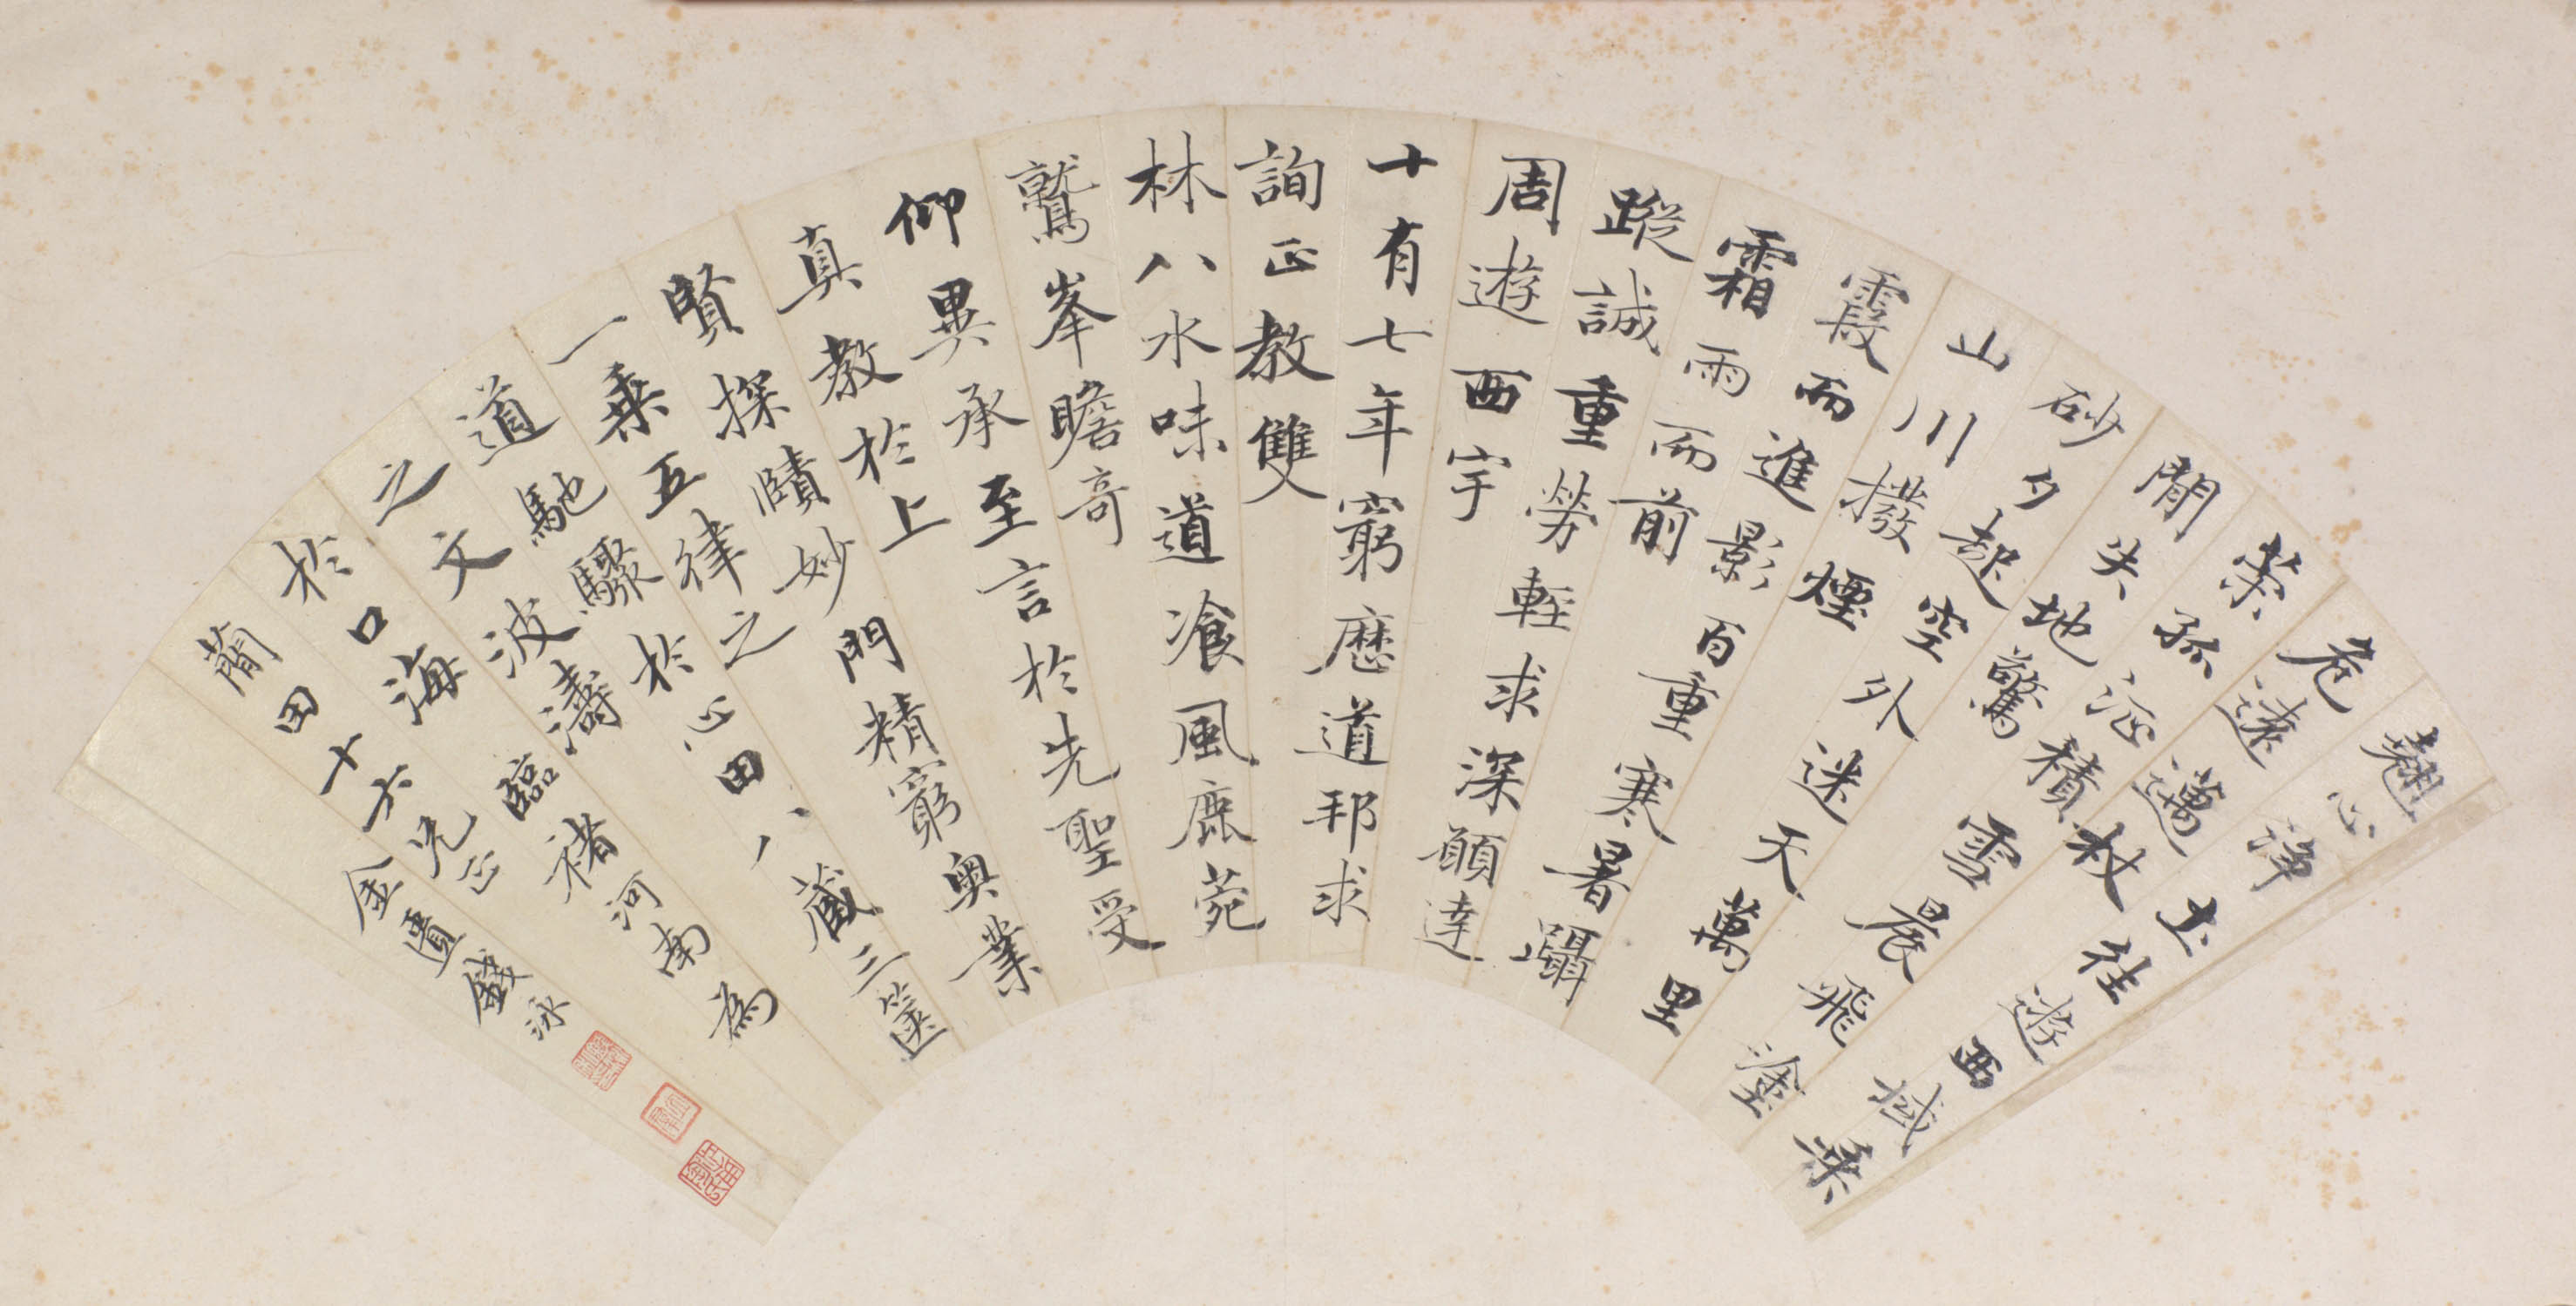 翹心淨土往遊西域乘
危遠邁杖
策孤征積雪晨飛塗
閒失地驚
砂夕起空外迷天萬里
山川撥煙
霞而進影百重寒暑躡
霜雨而前
蹤誠重勞輕求深願達
周遊西宇
十有七年窮歷道邦求
詢正教雙
林八水味道飡風鹿菀
鷲峯瞻奇
仰異承至言於先聖受
真教於上
賢探賾妙門精窮奧業
一乘五律之
道馳驟於心田八藏三篋
之文波濤
於口海臨褚河南為
蕑田十六兄正
金匱錢泳